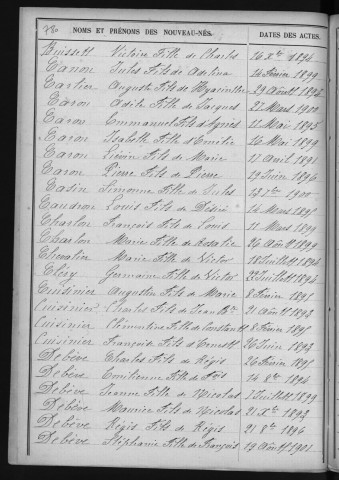 NOMS ET PRÉNOMS DES NOUVEAU-NÉS. DATES DES ACTES.
Buissett Victoire Fille de Charles 16 Xbre 1894
Caron Jules Fils de Adelina 24 Février 1899
Carlier Auguste Fils de Hyacinthe 29 Août 1896
Caron Adile Fille de Jacques 27 Mars 1900
Caron Emmanuel Fils d'Agnès 11 Mai 1893
Caron Isabelle Fille d'Emilie 16 Mai 1899
Caron Fils de Marie 17 Avril 1891
Caron Pierre Fils de Pierre 19 Juin 1896
Casin Simonne Fille de Jules 1900
Caudron Louis Fils de Désiré 14 Mars 1895
Charlon François Fils de Louis 11 Mars 1899
Charlon Marie Fille de Rosalie 26 Août 1899
Chevalier Marie Fille de Victor 18 Juillet 1894
Cléry Germaine Fille de Victor 23 Juillet 1894
Cuisinier Augustin Fils de Marie 8 Février 1895
Cuisinier Charles Fils de Jean Bte 21 Août 1893
Cuisinier Clémentine Fille de Constant 8 Février 1895
Cuisinier François Fils d'Ernest 26 Juin 1893
Debève Charles Fils de Régis 26 Février 1895
Debève Emilienne Fille de Fois 14 8bre 1894
Debève Jeanne Fille de Nicolas 1 Juillet 1899
Debève Maurice Fils de Nicolas 21 Xbre 1893
Debève Régis Fils de Régis 21 8bre 1896
Debève Stéphanie Fille de François 19 Août 1901